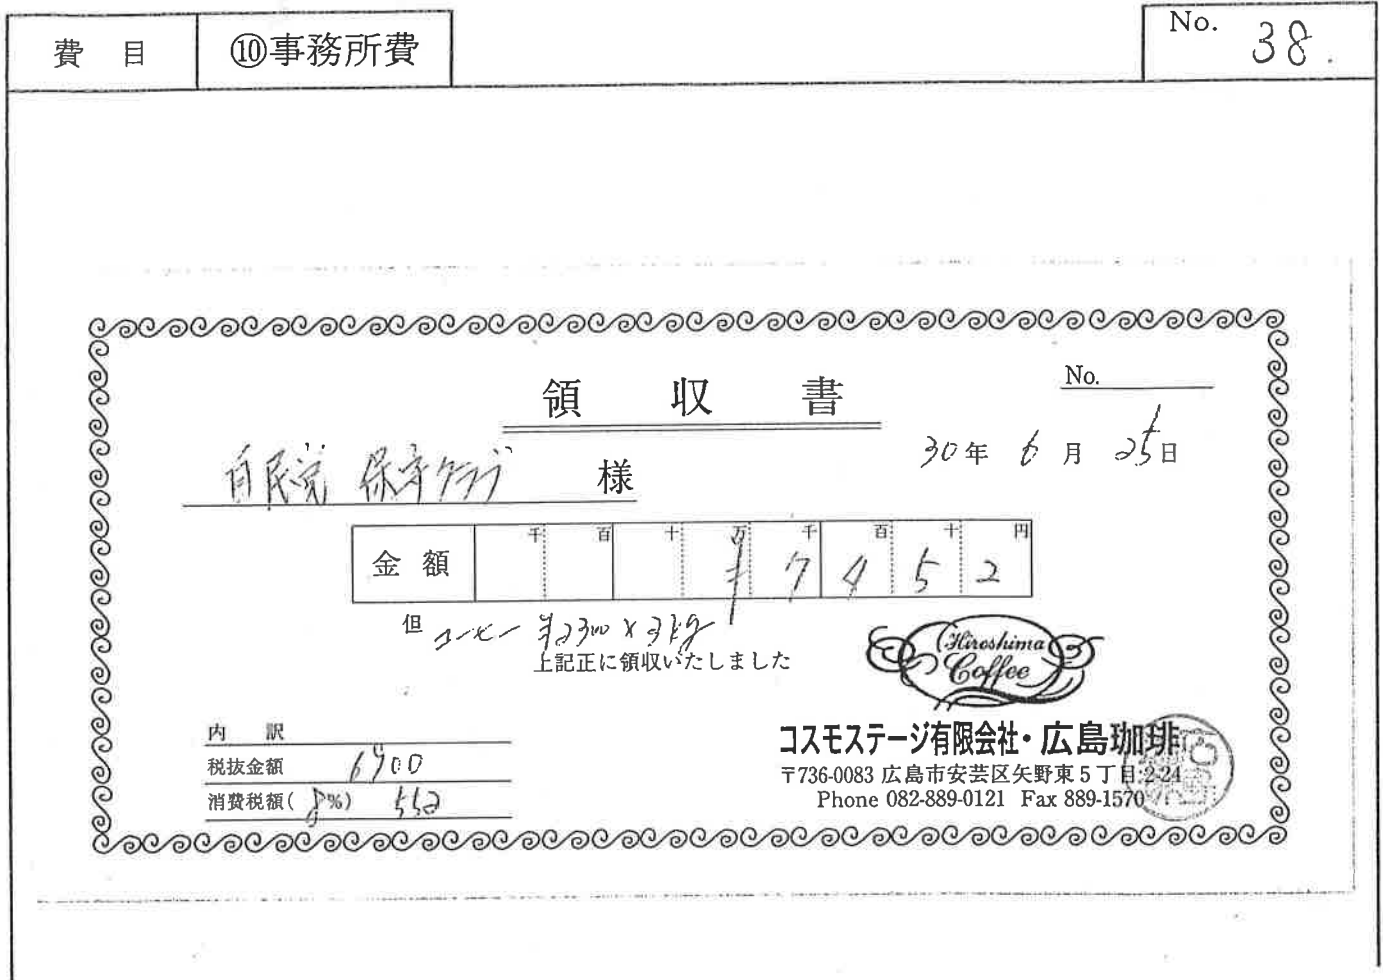 費 目 ⑩事務所費 No. 38.
領 収 書 No.
30年 6月 25日
自民党 保守クラブ 様
千 百 十 万 千 百 十 円
金 額 ¥ 7 4 5 2
但 コーヒー ¥2300 × 3kg
上記正に領収いたしました
Hiroshima
Coffee
内 訳
税抜金額 6900
消費税額( 8%) 552
コスモステージ有限会社・広島珈琲
〒736-0083 広島市安芸区矢野東5丁目2-24
Phone 082-889-0121 Fax 889-1570